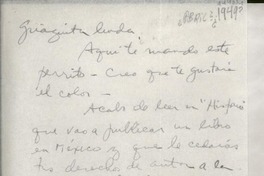 [ABRIL?]
1948?
linda
Aquí te mando este
perrito - Creo que te gustaría
el color -
Acabo de leer en "Hispano"
que vas a publicar un libro
en México y que le cederás
tus derechos de autor a la